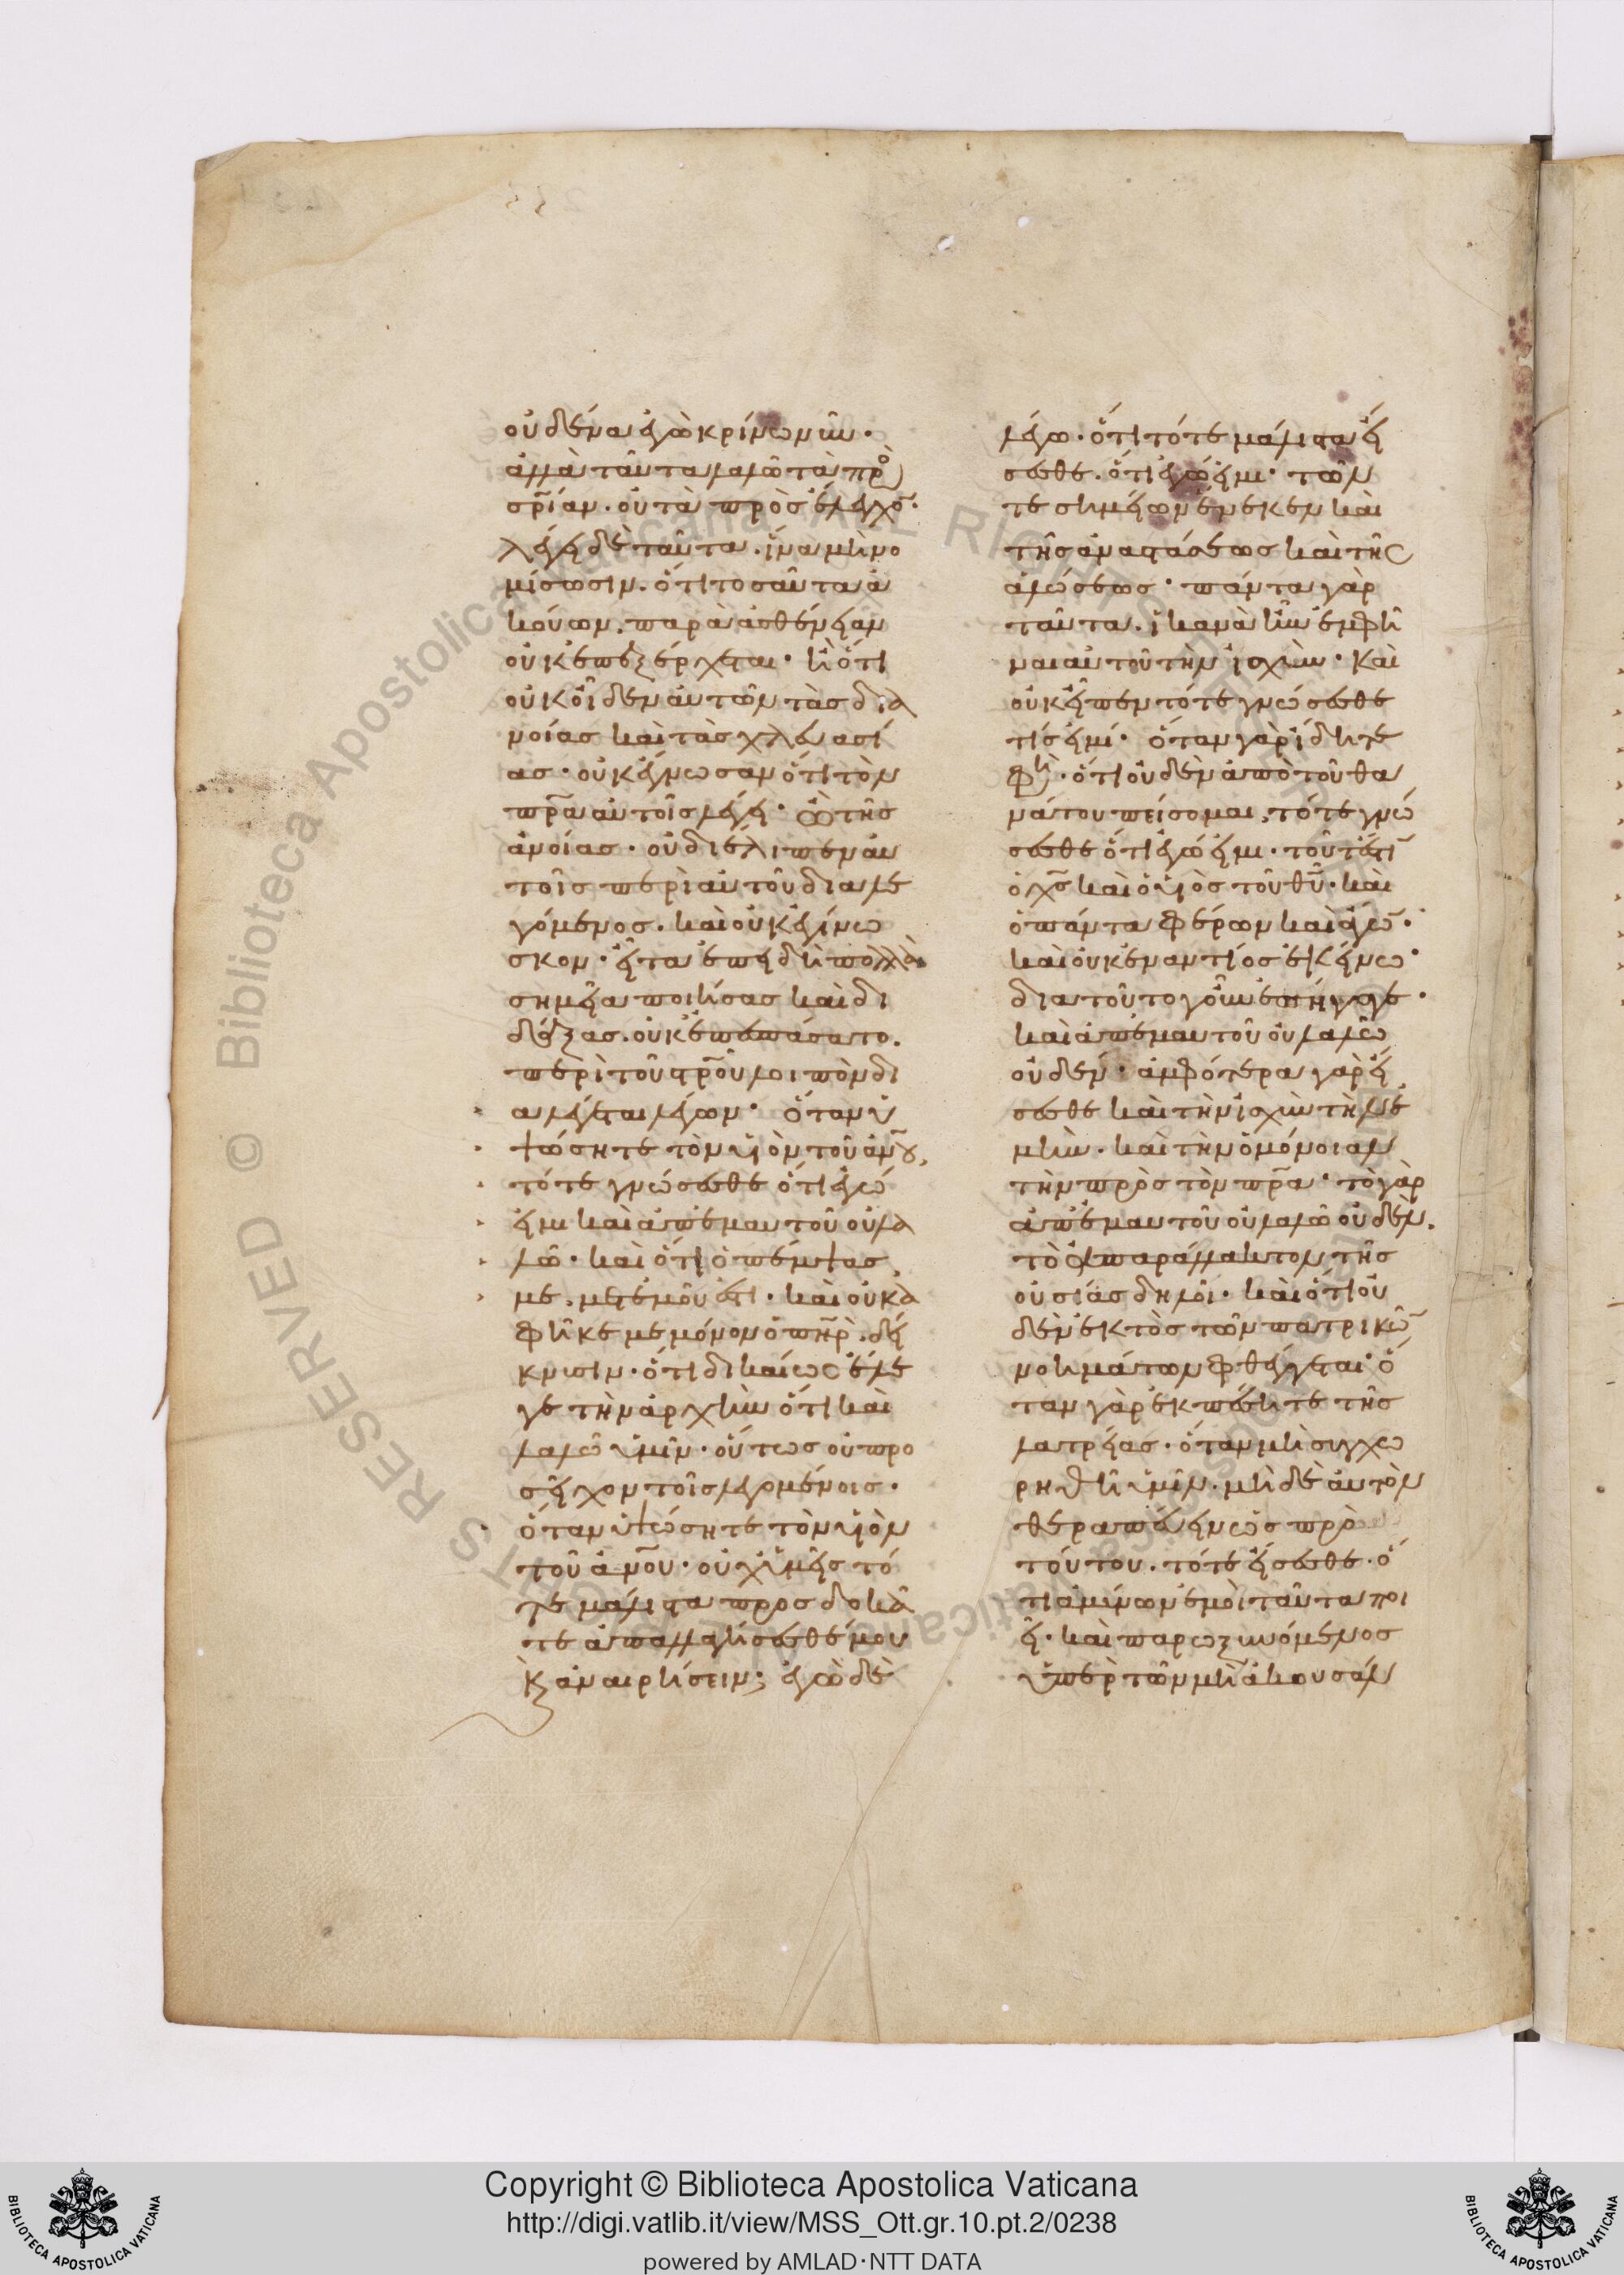 οὐδένα ἐγὼ κρίνω νῦν·
ἀλλὰ ταῦτα λαλῶ τὰ πρὸ(ς)
σρίαν· οὐ τὰ πρὸς ἔλεγχο̅·
λέγει δὲ ταῦτα. ἵνα μὴ νο
μίσωσιν. ὅτι τοσαῦτα ἀ
κούων. παρὰ ἀσθένειαν
οὐκ ἐπεξέρχεται· ἢ ὅτι
οὐκ οἶδεν αὐτῶν τὰς δια
νοίας καὶ τὰς χλευασί
ας· οὐκ ἔγνωσαν ὅτι τὸν
πρ̅α αὐτοῖς λέγει· ὢ τῆς
ἀνοίας· οὐ διέλιπεν αυ
τοῖς περὶ αὐτοῦ διαλε
γόμενος. καὶ οὐκ ἐγίνω
σκον· εἶτα ἐπειδὴ πολλὰ
σημεῖα ποιήσας καὶ δι
δάξας. οὐκ ἐπεσπάσατο.
περὶ τοῦ σρ̅οῦ λοιπὸν δι
αλέγεται λέγων· ὅταν ὑ
ψώσητε τὸν υἱὸν τοῦ ἀν̅ου,
τότε γνώσεσθε ὅτι ἐγώ
εἰμι καὶ ἀπ' ἐμαυτοῦ οὐ λα
λῶ· καὶ ὅτι ὁ πέμψας
με. μετ' ἐμοῦ ἐστι· καὶ οὐκ ἀ
φῆκέ με μόνον ὁ πη̅ρ. δεί
κνυσιν· ὅτι δικαίως ἔλε
γε τὴν ἀρχὴν ὅτι καὶ
λαλῶ ὑμῖν· οὕτως οὐ προ
σεῖχον τοῖς λεγομένοις·
ὅταν ὑψώσητε τὸν υἱὸν
τοῦ ἀν̅ου· οὐχ ὑμεῖς τό
τε μάλιστα προσδοκᾶ
τε ἀπαλλαγήσεσθέ μου
κ(αὶ) ἀναιρήσειν; ἐγὼ δὲ
λέγω· ὅτι τότε μάλιστα εἴ
σεσθε. ὅτι ἐγώ εἰμι· τῶν
τε σημείων ἕνεκεν καὶ
τῆς ἀναστάσεως καὶ τῆς
ἁλώσεως· πάντα γὰρ
ταῦτα. ἱκανὰ ἦν ἐμφῆ
ναι αὐτοῦ τὴν ἰσχύν· καὶ
οὐκ εἶπεν τότε γνώσεσθε
τίς εἰμί· ὅταν γὰρ ἴδητέ
φη(σι)· ὅτι οὐδὲν ἀπὸ τοῦ θα
νάτου πείσομαι, τότε γνώ
σεσθε ὅτι ἐγώ εἰμι· τουτέστι̅
ὁ χ̅ς καὶ ὁ υἱὸς τοῦ θ̅υ· καὶ
ὁ πάντα φέρων καὶ ἄγω̅·
καὶ οὐκ ἐναντίος ἐκείνω·
διὰ τοῦτο γοῦν ἐπήγαγε·
καὶ ἀπ' ἐμαυτοῦ οὐ λαλῶ
οὐδέν· ἀμφότερα γὰρ εἴ
σεσθε καὶ τὴν ἰσχὺν τὴν ἐ
μὴν· καὶ τὴν ὁμόνοιαν
τὴν πρὸς τὸν πρ̅α· τὸ γὰρ
ἀπ' ἐμαυτοῦ οὐ λαλῶ οὐδέν.
τὸ ἀπαράλλακτον τῆς
οὐσίας δηλοῖ· καὶ ὅτι οὐ
δὲν ἐκτὸς τῶν πατρικῶ̅
νοημάτων φθέγγεται· ὅ
ταν γὰρ ἐκπέσητε τῆς
λατρείας· ὅταν μὴ συγχω
ρηθῆ ὑμῖν. μὴ δὲ αὐτὸν
θεραπεύειν ὡς πρὸ
τούτου. τότε εἴσεσθε· ὅ
τι ἀμύνων ἐμοὶ ταῦτα ποι
εῖ· καὶ παρωξυνόμενος
ὑπὲρ τῶν μὴ ἀκουσάν